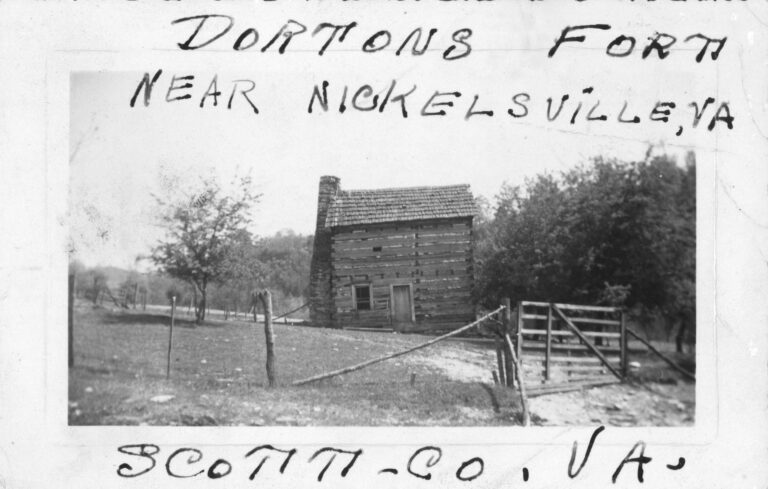 DORTONS FORT
NEAR NICKELSVILLE, VA
SCOTT-CO, VA.